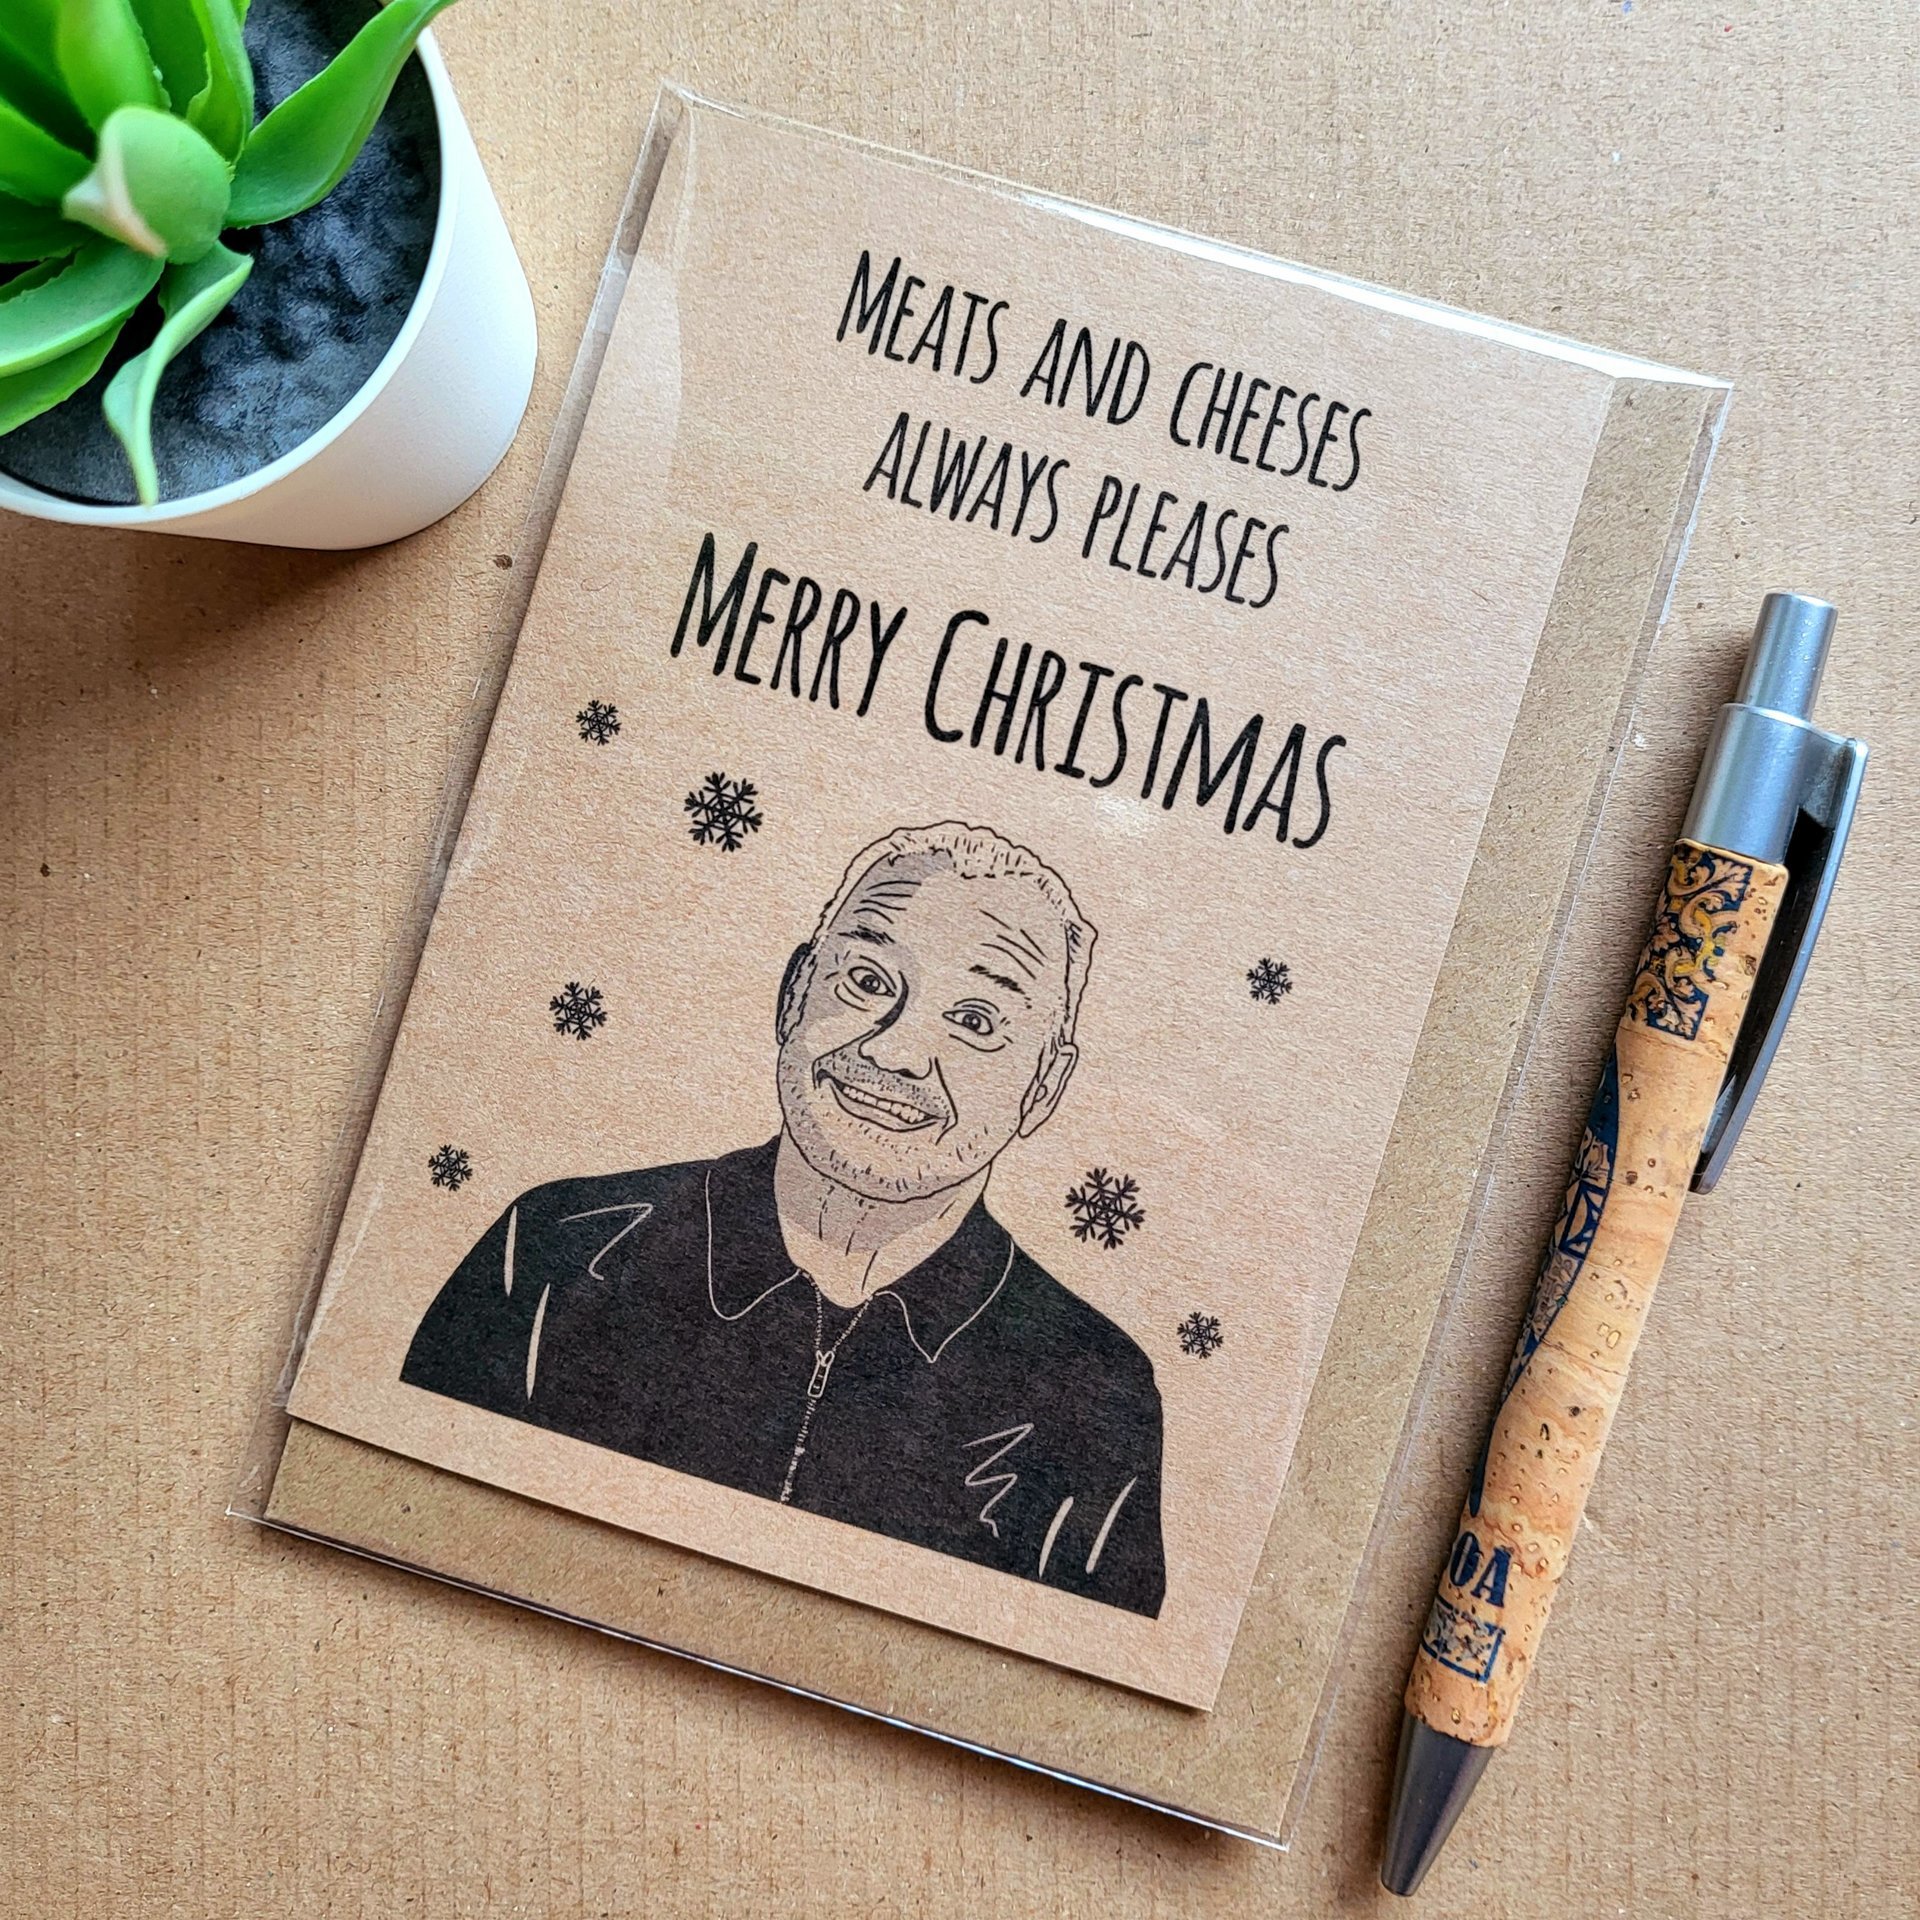 MEATS AND CHEESES
ALWAYS PLEASES
MERRY CHRISTMAS
OA